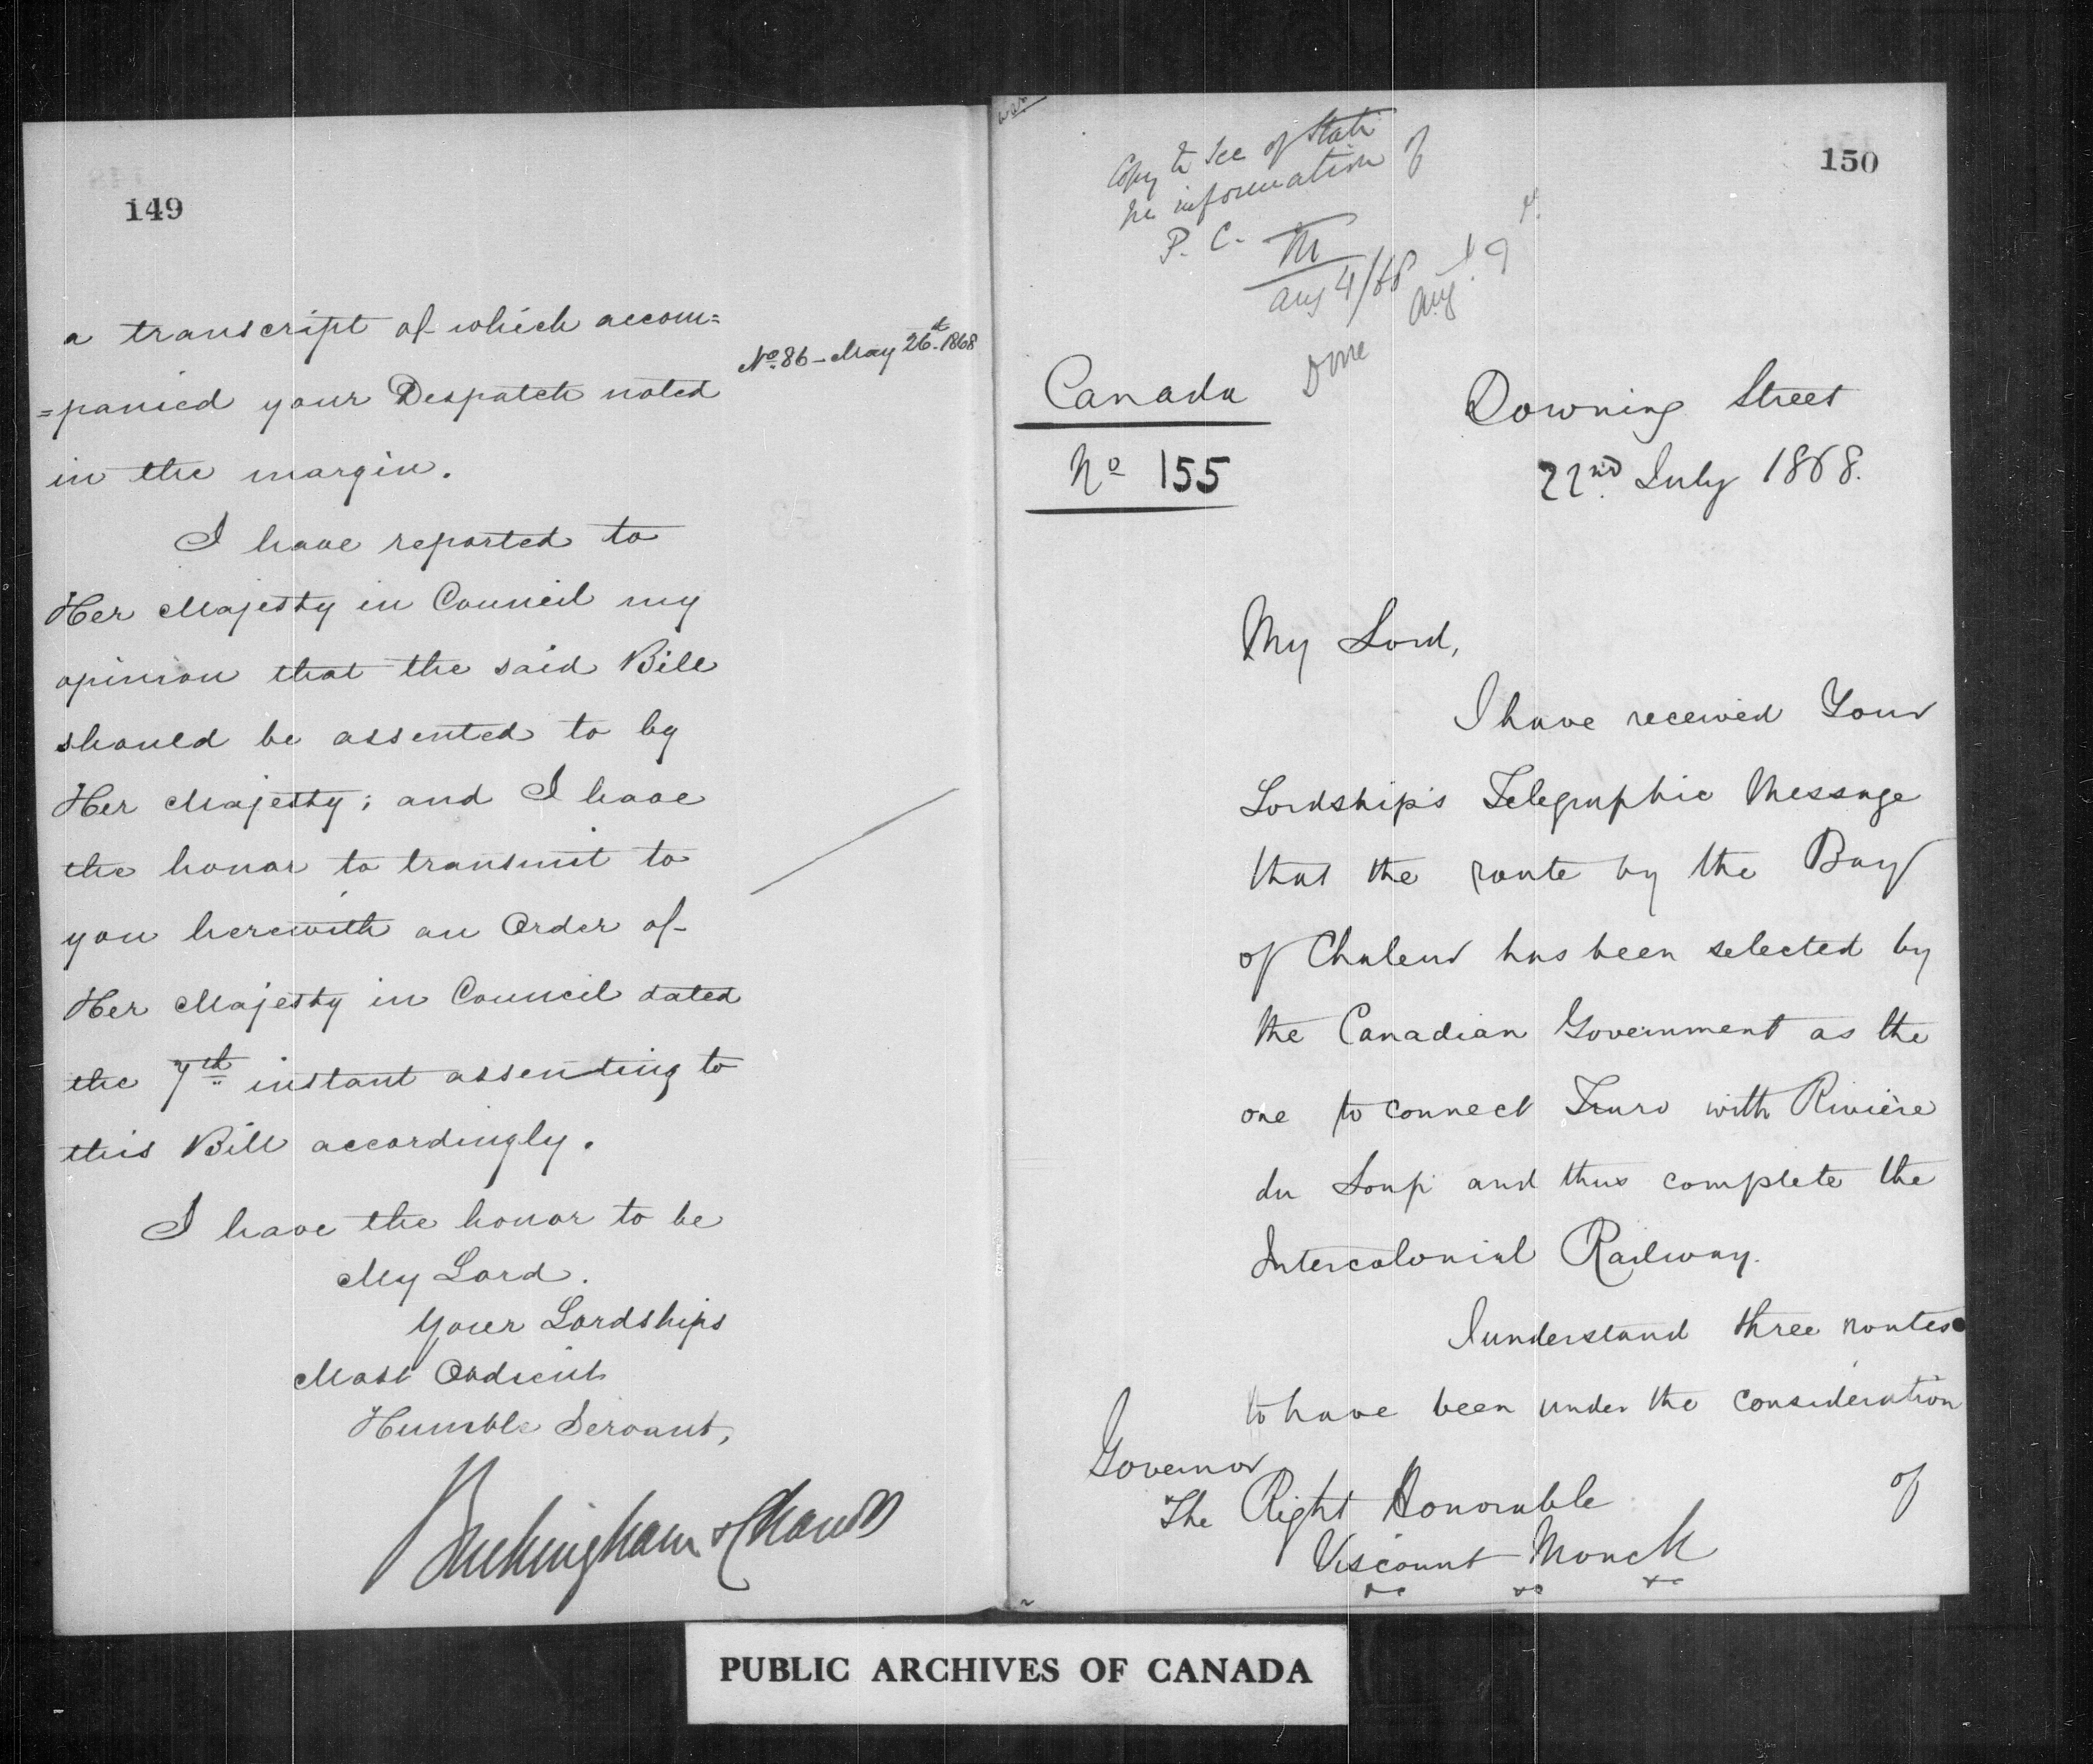 149
a transcript of which accom=
No. 86 - May 26th 1868
=panied your Despatch noted
in the margin.
I have reported to
Her Majesty in Council my
opinion that the said Bill
should be assented to by
Her Majesty; and I have
the honor to transmit to
you herewith an Order of
Her Majesty in Council dated
the 7th instant assenting to
this Bill accordingly.
I have the honor to be
My Lord.
Your Lordships
Most Obdient
Humble Servant,
Buckingham & Chandos
150
Copy to Sec of State
information of
P. C. M
Aug 4/68
Aug. 19
Done
Canada
No 155
Downing Street
22nd July 1868.
My Lord,
I have received Your
Lordship's Telegraphic Message
that the route by the Bay
of Chaleur has been selected by
the Canadian Government as the
one to connect Truro with Rivière
du Loup and thus complete the
Intercolonial Railway.
I understand three routes
to have been under the consideration
of
Governor
The Right Honorable
Viscount Monck
&c &c &c
PUBLIC ARCHIVES OF CANADA